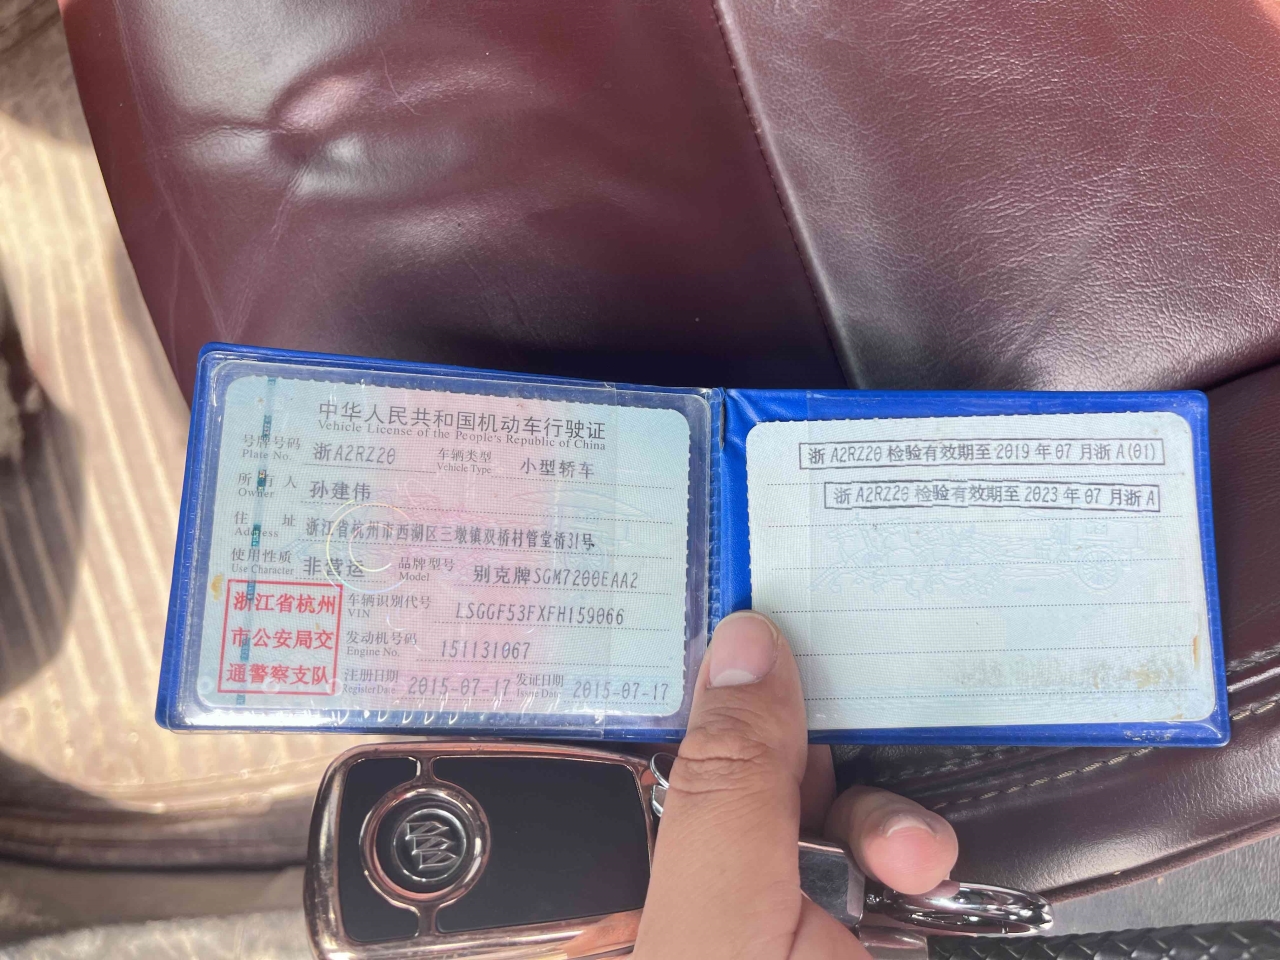 中华人民共和国机动车行驶证
Vehicle License of the People's Republic of China
号牌号码 浙A2RZ20 车辆类型 小型轿车
Plate No. Vehicle Type
所有人 孙建伟
Owner
住址 浙江省杭州市西湖区三墩镇双桥村管堂桥31号
Address
使用性质 非营运 品牌型号 别克牌SGM7200EAA2
Use Character Model
浙江省杭州
市公安局交
通警察支队
车辆识别代号 LSGGF53FXFH159066
VIN
发动机号码 151131067
Engine No.
注册日期 2015-07-17 发证日期 2015-07-17
Register Date Issue Date
浙A2RZ20检验有效期至2019年07月浙A(01)
浙A2RZ20检验有效期至2023年07月浙A